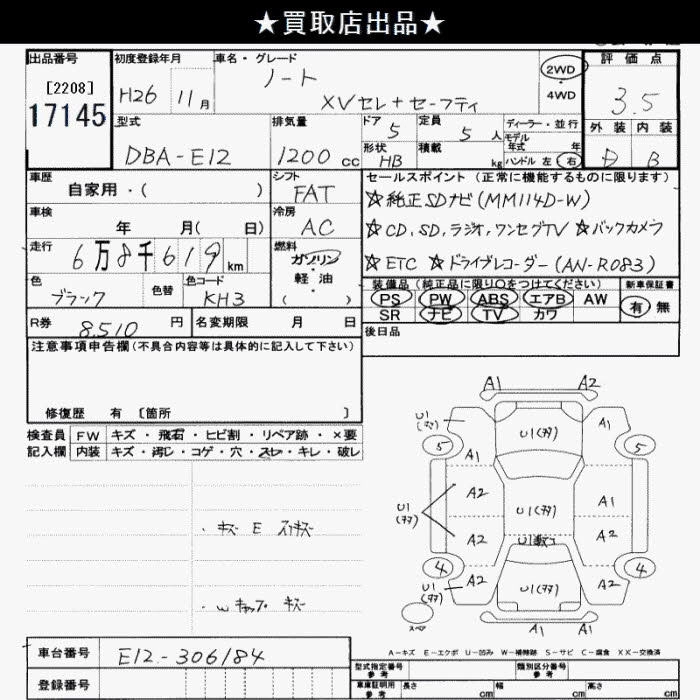 ★買取店出品★
出品番号 初度登録年月 車名・グレード 評価点
[2208]
17145
H26 11月
ノート
XVセレ+セーフティ
2WD
・
4WD
3.5
型式 排気量 ドア 定員 ディーラー・並行 外装 内装
DBA-E12 1200cc 5 5人
モデル年式 年
形状 HB 積載 kg ハンドル 左 右
D B
車歴 シフト セールスポイント(正常に機能するものに限ります)
自家用・( ) FAT
☆純正SDナビ(MM114D-W)
車検 冷房
年 月( 日) AC
☆CD,SD,ラジオ,ワンセグTV ☆バックカメラ
走行 燃料
6万8千619km ガソリン・軽油( )
☆ETC ☆ドライブレコーダー(AN-R083)
色 色替 色コード
ブラック KH3
装備品(純正品に限り○をつけてください) 新車保証書
PS PW ABS エアB AW 有 無
SR ナビ TV カワ
R券 8,510円 名変期限 月 日
後日品
注意事項申告欄(不具合内容等は具体的に記入して下さい)
修復歴 有 〔箇所 〕
検査員 FW キズ・飛石・ヒビ割・リペア跡・×要
記入欄 内装 キズ・汚レ・コゲ・穴・スレ・キレ・破レ
A1 A2
U1
5 U1 A1 5
A1
A2 U1 A1
U1
A2 A2
4 U1 4
U1 A2 A2
スペア A1 A1
・キズ E スリキズ
・Wキャップ キズ
A-キズ E-エクボ U-凹み W-補修跡 S-サビ C-腐食 XX-交換済
車台番号 E12-306184
登録番号
型式指定番号 参考 類別区分番号 参考
車庫証明用 参考 長さ cm 幅 cm 高さ cm